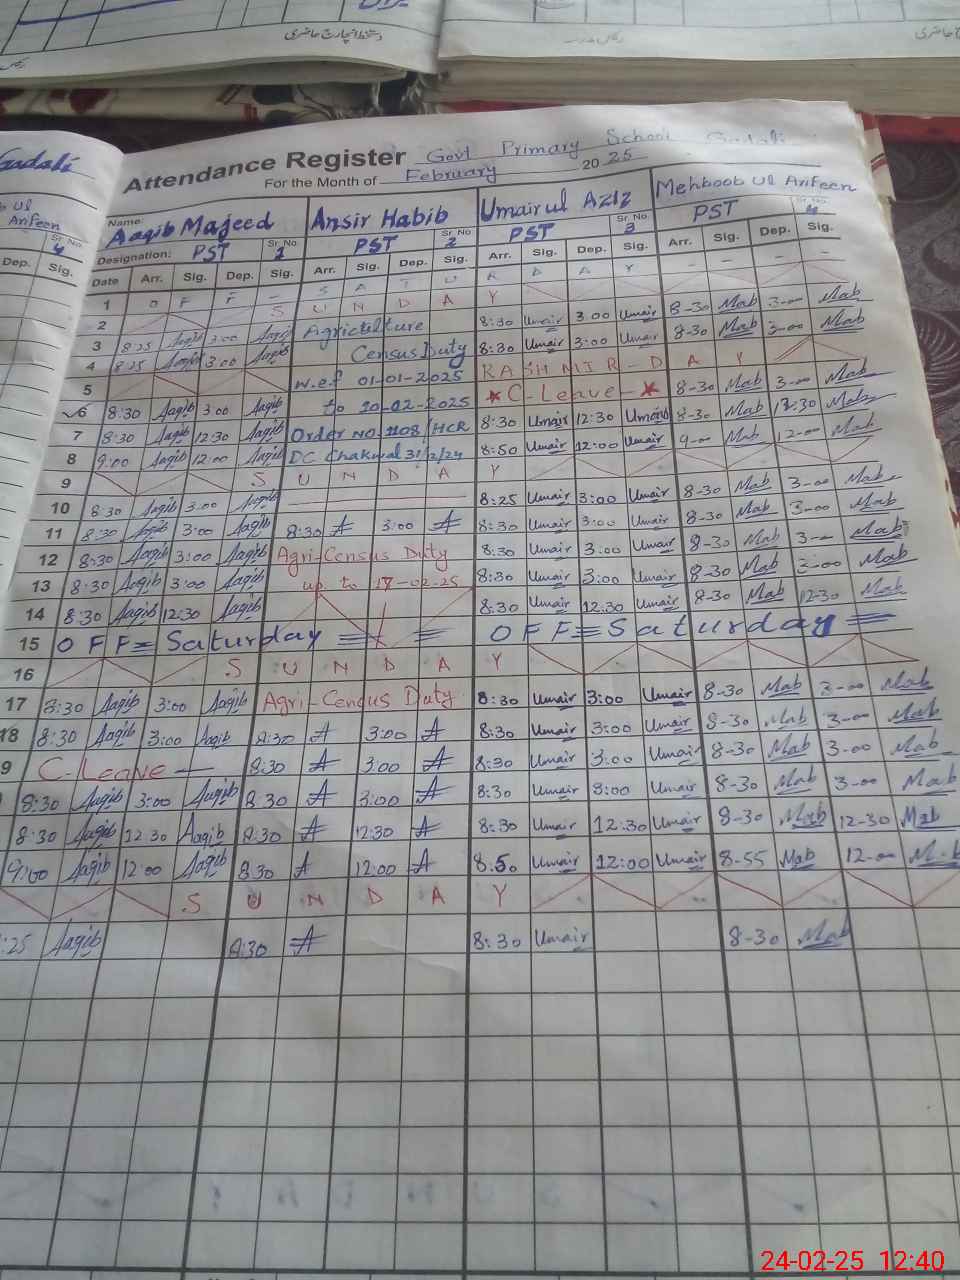 دستخط انچارج حاضری
Gadali
Ul
Arifeen
Sr. No.
4
Dep. Sig.
Attendance Register Govt Primary School Gadali
For the Month of February 2025
Name: Aaqib Majeed Ansir Habib Umair ul Aziz Mehboob Ul Arifeen
Designation: PST Sr. No. 1 PST Sr. No. 2 PST Sr. No. 3 PST Sr. No. 4
Date Arr. Sig. Dep. Sig. Arr. Sig. Dep. Sig. Arr. Sig. Dep. Sig. Arr. Sig. Dep. Sig.
1 O F F - S A T U R D A Y - - - -
2 S U N D A Y
3 8:25 Aaqib 3:00 Aaqib Agriculture 8:30 Umair 3:00 Umair 8-30 Mab 3-00 Mab
4 8:25 Aaqib 3:00 Aaqib Census Duty 8:30 Umair 3:00 Umair 8-30 Mab 3-00 Mab
5 w.e.f 01-01-2025 KASHMIR-DAY
6 8:30 Aaqib 3:00 Aaqib to 10-02-2025 C-Leave 8-30 Mab 3-00 Mab
7 8:30 Aaqib 12:30 Aaqib Order No. 1108/HCR 8:30 Umair 12:30 Umair 8-30 Mab 12-30 Mab
8 9:00 Aaqib 12:00 Aaqib DC Chakwal 31/12/24 8:50 Umair 12:00 Umair 9-00 Mab 12-00 Mab
9 S U N D A Y
10 8:30 Aaqib 3:00 Aaqib 8:25 Umair 3:00 Umair 8-30 Mab 3-00 Mab
11 8:30 Aaqib 3:00 Aaqib 8:30 A 3:00 A 8:30 Umair 3:00 Umair 8-30 Mab 3-00 Mab
12 8:30 Aaqib 3:00 Aaqib Agri-Census Duty 8:30 Umair 3:00 Umair 8-30 Mab 3-00 Mab
13 8:30 Aaqib 3:00 Aaqib up to 17-02-25 8:30 Umair 3:00 Umair 8-30 Mab 3-00 Mab
14 8:30 Aaqib 12:30 Aaqib 8:30 Umair 12:30 Umair 8-30 Mab 12-30 Mab
15 OFF=Saturday OFF=Saturday
16 S U N D A Y
17 8:30 Aaqib 3:00 Aaqib Agri-Census Duty 8:30 Umair 3:00 Umair 8-30 Mab 3-00 Mab
18 8:30 Aaqib 3:00 Aaqib 8:30 A 3:00 A 8:30 Umair 3:00 Umair 8-30 Mab 3-00 Mab
9 C-Leave 8:30 A 3:00 A 8:30 Umair 3:00 Umair 8-30 Mab 3-00 Mab
8:30 Aaqib 3:00 Aaqib 8:30 A 3:00 A 8:30 Umair 3:00 Umair 8-30 Mab 3-00 Mab
8:30 Aaqib 12:30 Aaqib 8:30 A 12:30 A 8:30 Umair 12:30 Umair 8-30 Mab 12-30 Mab
9:00 Aaqib 12:00 Aaqib 8:30 A 12:00 A 8:50 Umair 12:00 Umair 8-55 Mab 12-00 Mab
S U N D A Y
:25 Aaqib 8:30 A 8:30 Umair 8-30 Mab
24-02-25 12:40